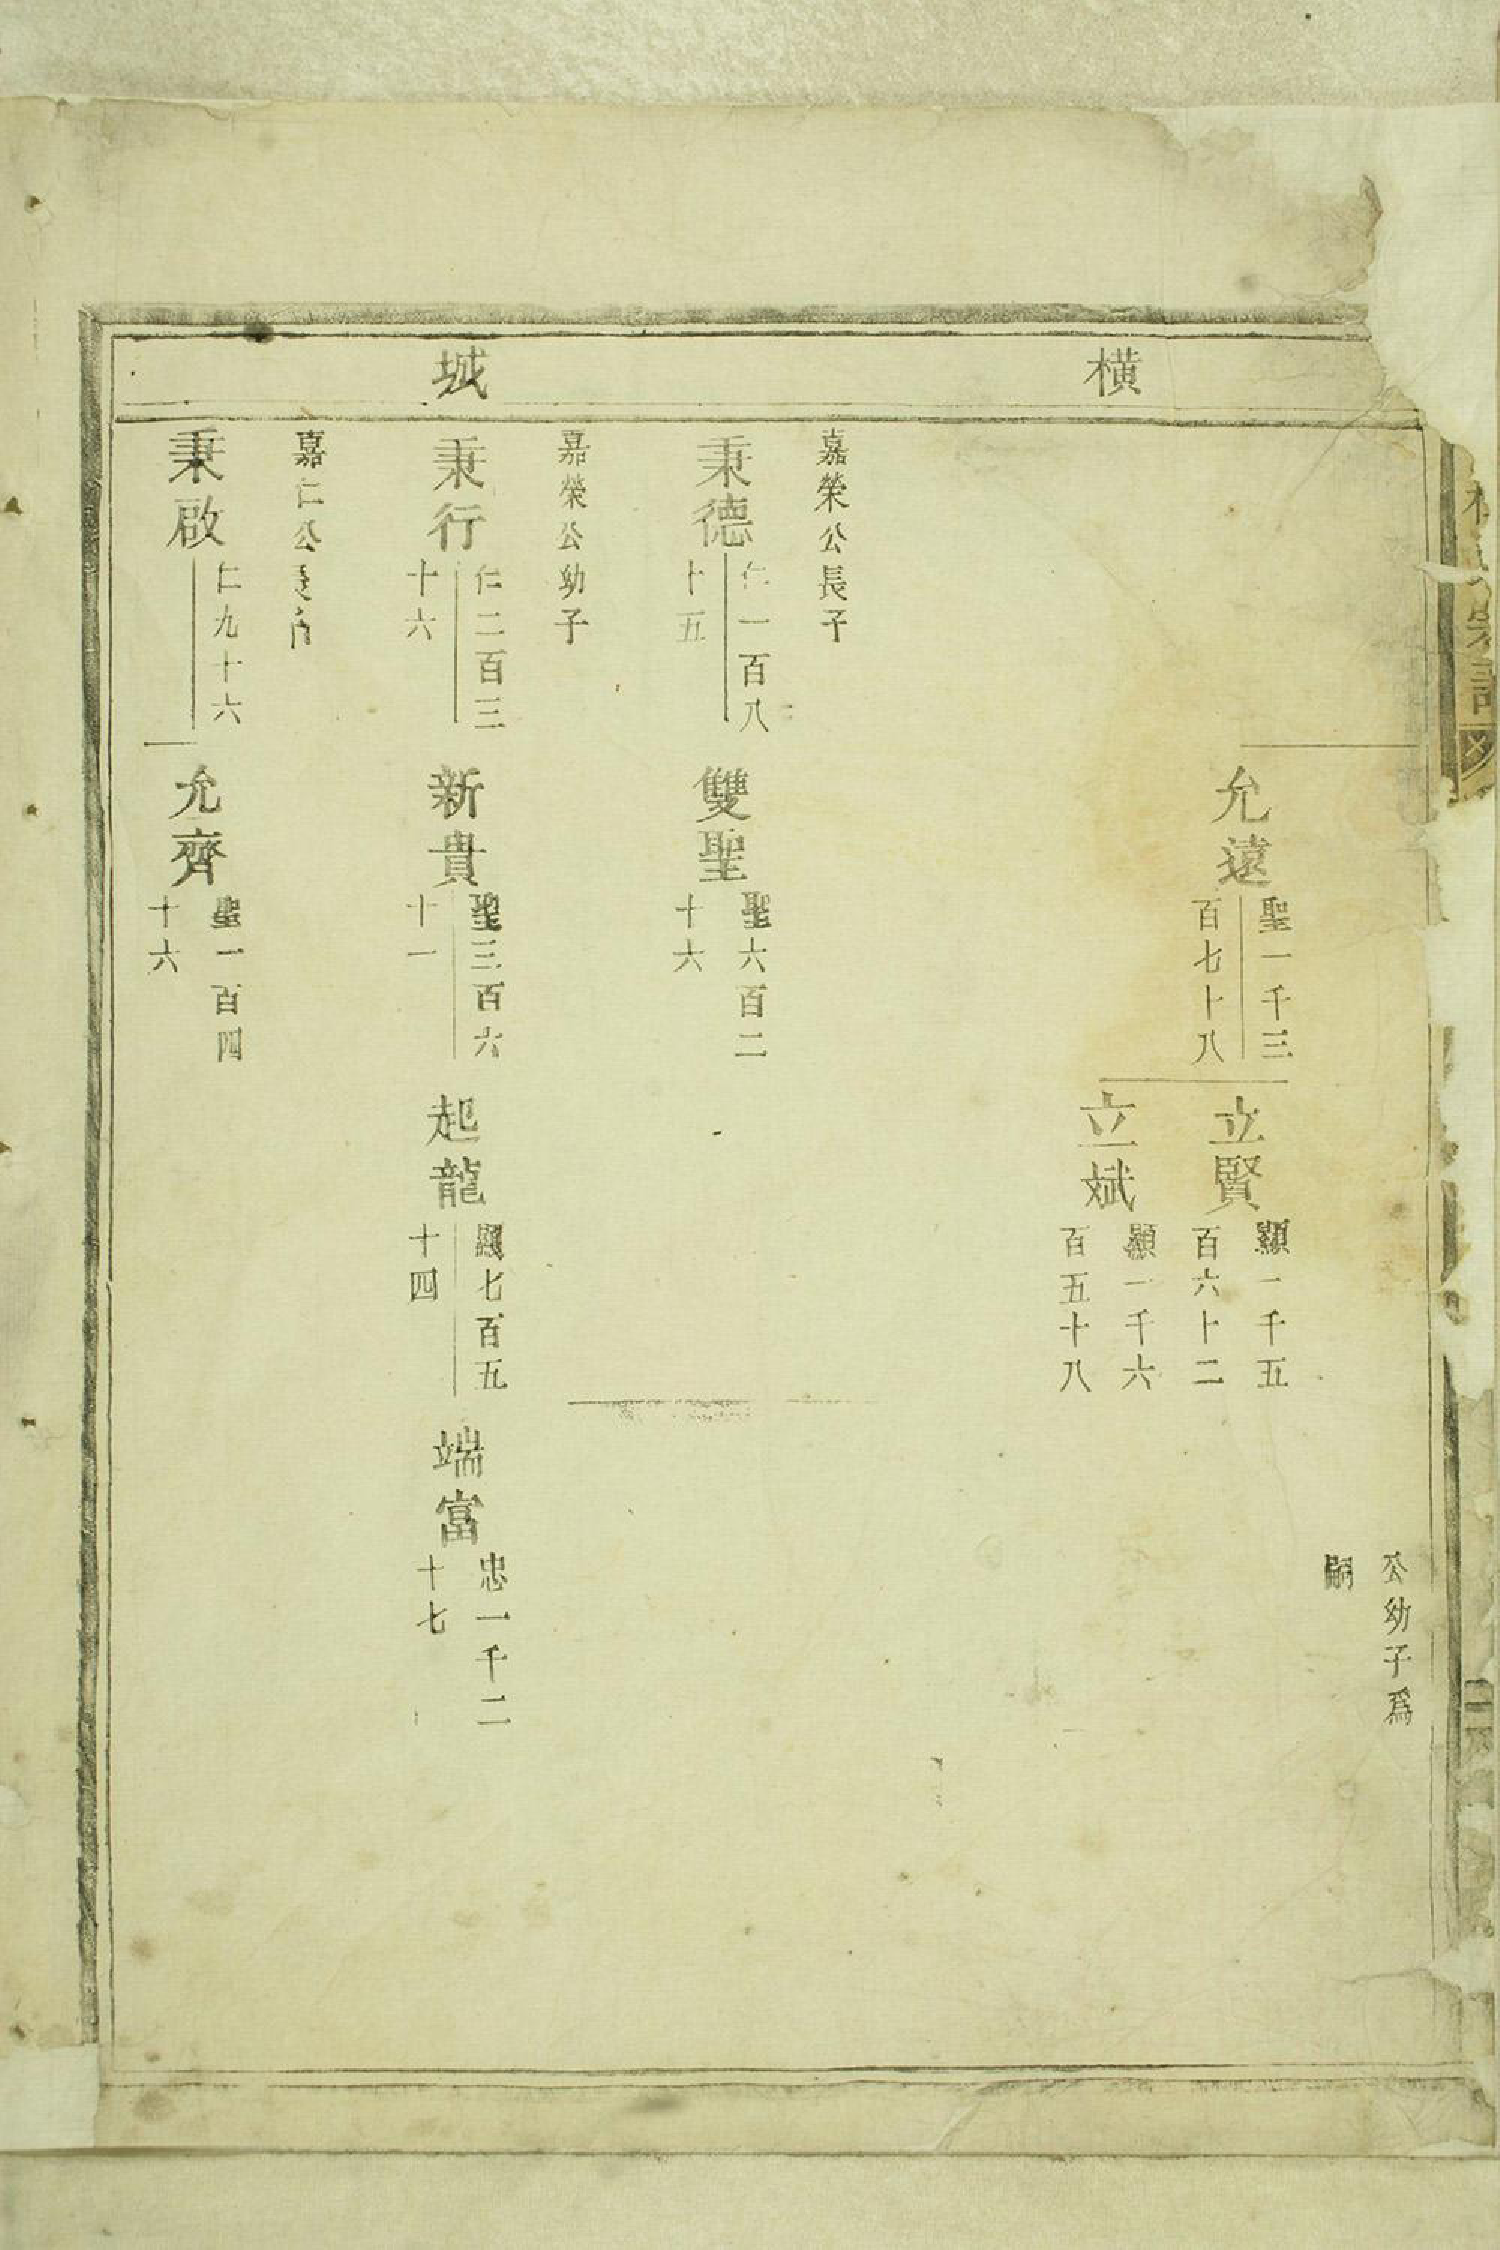 橫城
公幼子爲
嗣
允遠
聖一千三
百七十八
立賢
顯一千五
百六十二
立斌
顯一千六
百五十八
嘉榮公長子
秉德
仁一百八
十五
雙聖
聖六百二
十六
嘉榮公幼子
秉行
仁二百三
十六
新貴
聖三百六
十一
起龍
顯七百五
十四
端富
忠一千二
十七
嘉仁公長
秉啟
仁九十六
允齊
聖一百四
十六